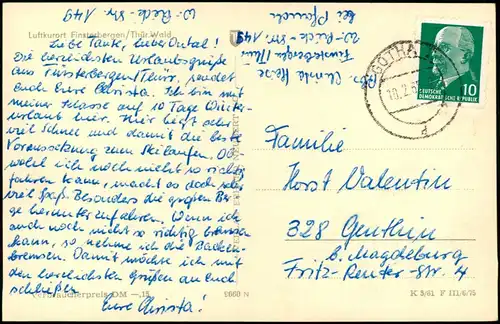 W.-Pieck-Str. 149
Luftkurort Finsterbergen/Thür. Wald
Liebe Tante, lieber Onkel!
Die herzlichsten Urlaubsgrüße
aus Finsterbergen/Thür. sendet
euch Eure Christa. Ich bin mit
meiner Klasse auf 10 Tage Winter-
urlaub hier. Hier liegt sehr
viel Schnee und damit die beste
Voraussetzung zum Skilaufen. Ob-
wohl ich noch nicht so richtig
fahren kann, macht es doch sehr
viel Spaß. Besonders die großen Ber-
ge herunterzufahren. Wenn ich
auch noch nicht so richtig bremsen
kann, so nehme ich die Backen-
bremsen. Damit möchte ich mit
den herzlichsten Grüßen an Euch
schließen
Eure Christa!
Verbraucherpreis DM —,15
9660 N
Abs.: Christa
Finsterbergen/Thür
W.-Pieck-Str. 149
bei
GOTHA
DEUTSCHE
DEMOKRATISCHE REPUBLIK
10
Familie
Horst Valentin
328 Genthin
b. Magdeburg
Fritz-Reuter-Str. 4
K 5/61 F III/6/75